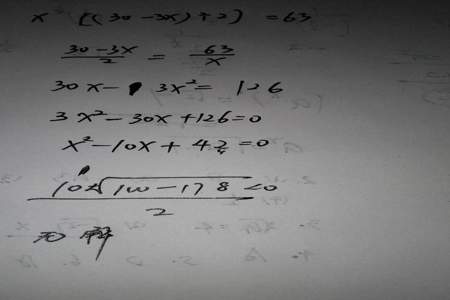 x ((30-3x)÷2) =63
30-3x/2 = 63/x
30x- 3x²= 126
3x²-30x+126=0
x²-10x+42=0
10±√100-178<0/2
无解